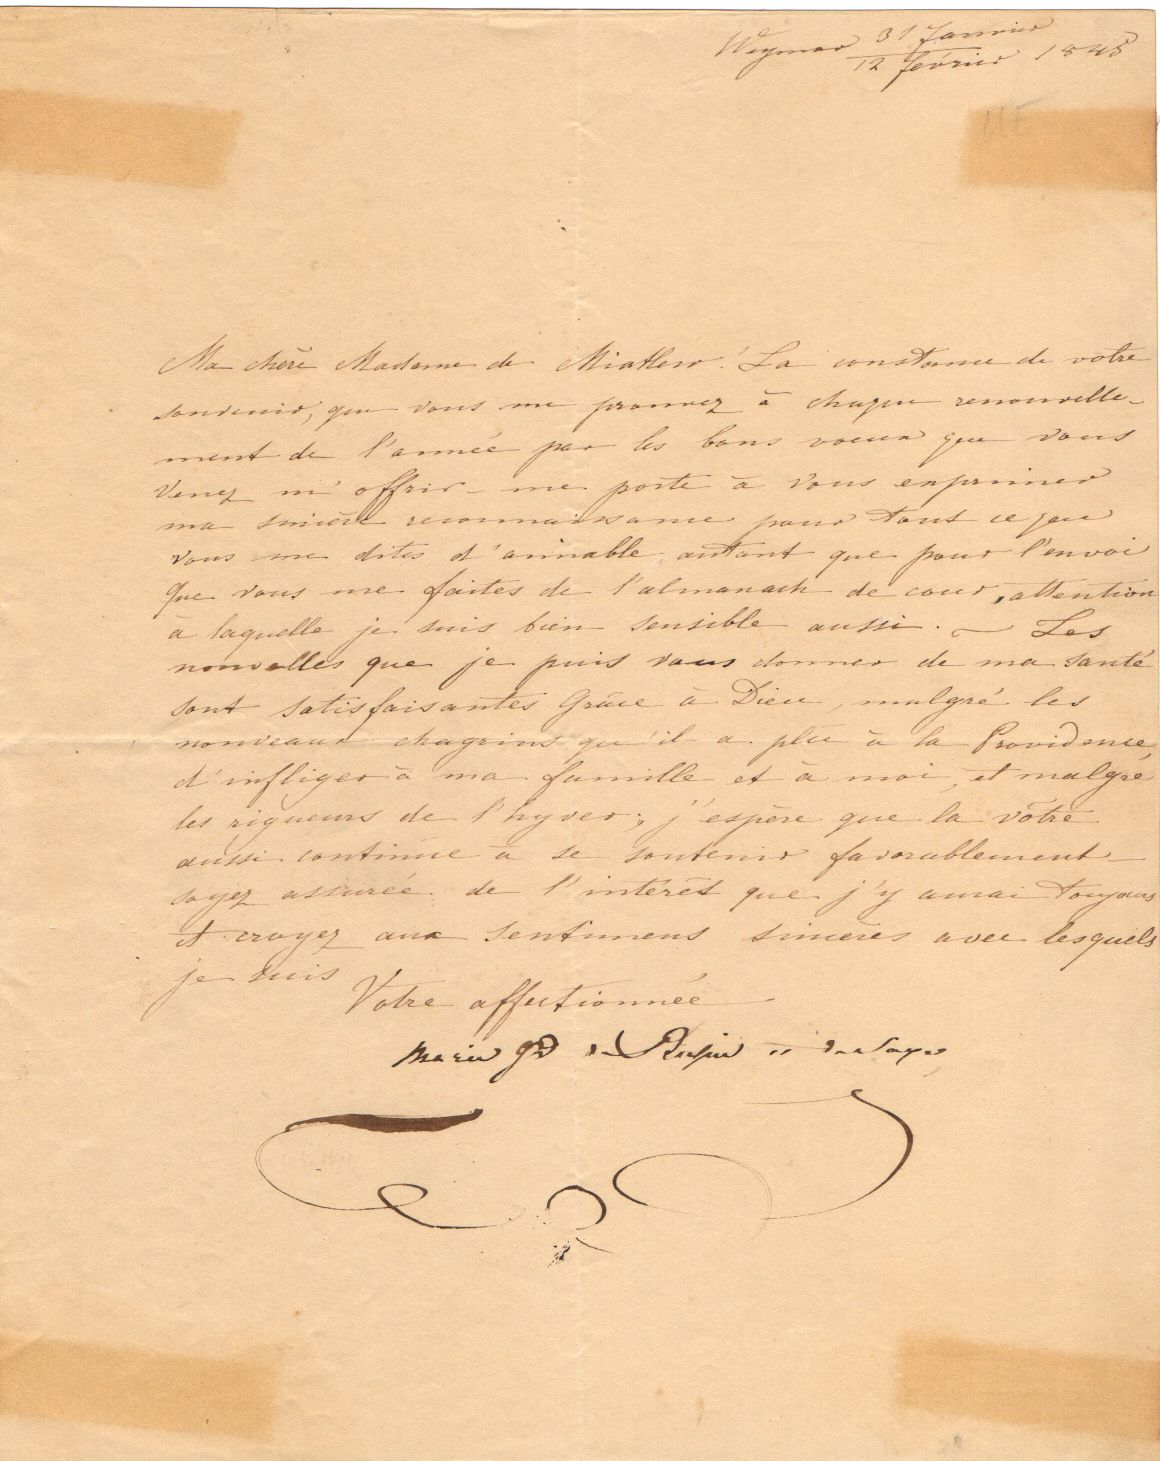 Weymar 31 Janvier
12 février 1845
Ma chère Madame de Miatlew! La constance de votre
souvenir, que vous me prouvez à chaque renouvelle-
ment de l'année par les bons voeux que vous
venez m'offrir - me porte à vous exprimer
ma sincère reconnaissance pour tout ce que
vous me dites d'aimable autant que pour l'envoi
que vous me faites de l'almanach de cour, attention
à laquelle je suis bien sensible aussi. — Les
nouvelles que je puis vous donner de ma santé
sont satisfaisantes Grâce à Dieu, malgré les
nouveaux chagrins qu'il a plû à la Providence,
d'infliger à ma famille et à moi, et malgré
les rigueurs de l'hyver; j'espère que la vôtre
aussi continue à se soutenir favorablement -
soyez assurée de l'intérêt que j'y aurai toujours
et croyez aux sentimens sincères avec lesquels
je suis
Votre affectionnée
Marie